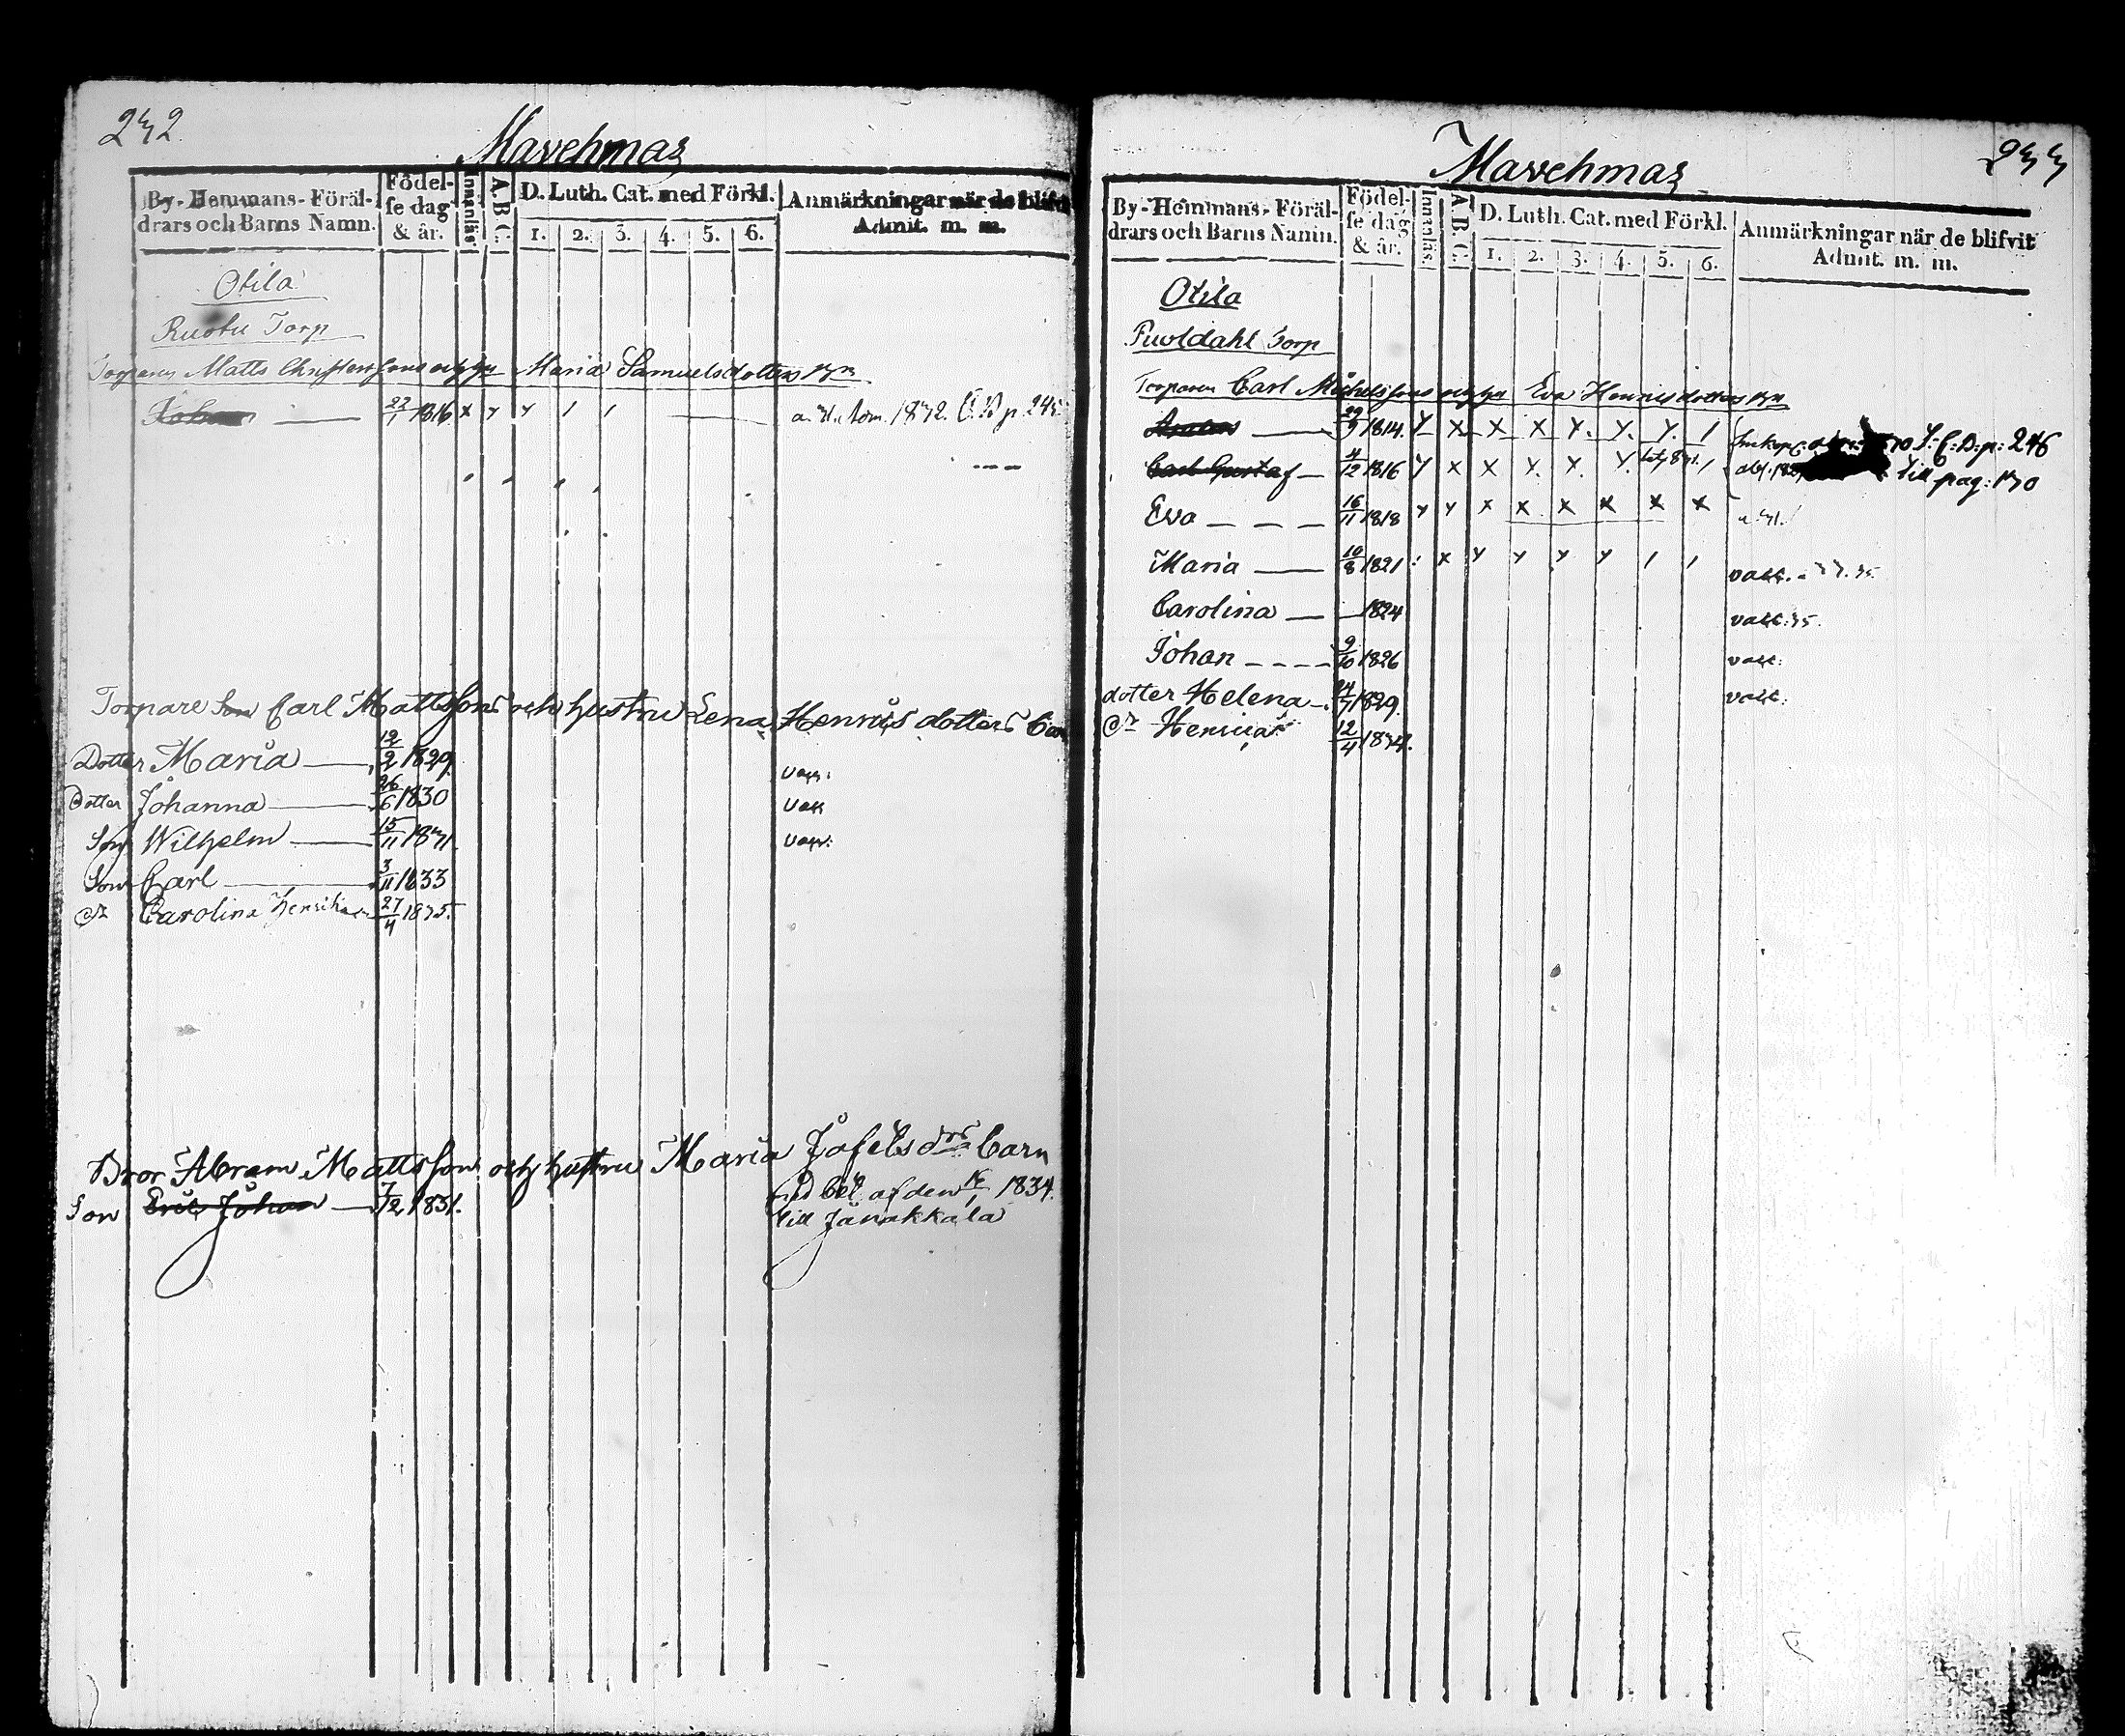 232
Mavehmaz
By- Hemmans- Föräl-
drars och Barns Namn.
Födel-
se dag
& år.
Innanläs
A.B.C.
D. Luth. Cat. med Förkl.
1. 2. 3. 4. 5. 6.
Anmärkningar när de blifvit
Admit. m. m.
Otila
Ruotu Torp
Torparen Matts Christerssons och Maria Samuelsdotters
Johan 22/1 1816 x y y 1 1 1832. p. 245
Torpare Son Carl Mattssons och hustru Lena Henriks dotters
Dotter Maria 12/2 1829 vacc:
Dotter Johanna 26/6 1830 vacc
Son Wilhelm 15/11 1831 vacc:
Son Carl 3/11 1833
Dr Carolina Henrika 27/4 1835.
Bror Abram Mattsson och hustru Maria Josefs drs barn
Son Eric Johan 7/12 1831.
med bet. af den 1834.
till Janakkala
233
Mavehmaz
By- Hemmans- Föräl-
drars och Barns Namn.
Födel-
se dag
& år.
Innanläs
A.B.C.
D. Luth. Cat. med Förkl.
1. 2. 3. 4. 5. 6.
Anmärkningar när de blifvit
Admit. m. m.
Otila
Torp
Torparen Carl Michelssons och Eva Henricsdotters
29/9 1814. y x x x y. y. y. 1 p: 246
Carl Gustaf 4/12 1816 y x x y. y. y. till pag: 170
Eva 16/11 1818 y y x x x x x x
Maria 10/8 1821 x y y y y 1 1 vacc.
Carolina 1824 vacc: 35.
Johan 9/10 1826 vacc:
dotter Helena 1829. vacc.
Dr Henrica 12/4 1834.